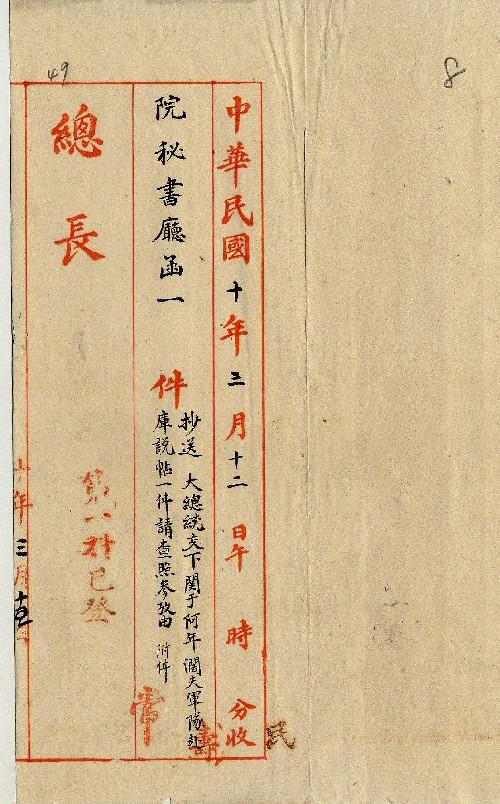 8
49
中華民國十年三月十二日午 時 分收
院秘書廳函一 件
抄送 大總統交下關于何年澗夫軍隊赴
庫說帖一件請查照參攷由 附件
總長
第一科已登
十年三月十五
民